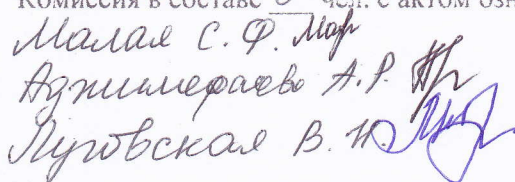 Комиссия в составе 3 чел. с актом озн
Малая С. Ф.
Аджимефаево А. Р.
Луговская В. Н.